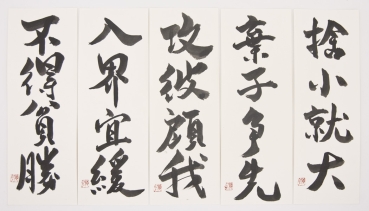 捨小就大
棄子争先
攻彼顧我
入界宜緩
不得負勝